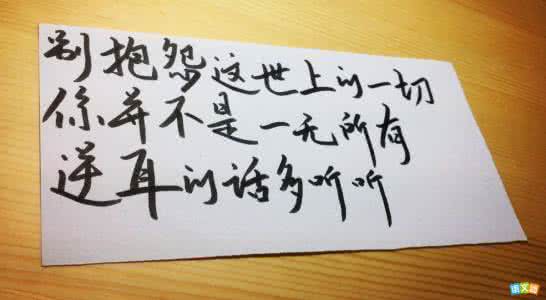 别抱怨这世上的一切
你并不是一无所有
逆耳的话多听听
语文迷